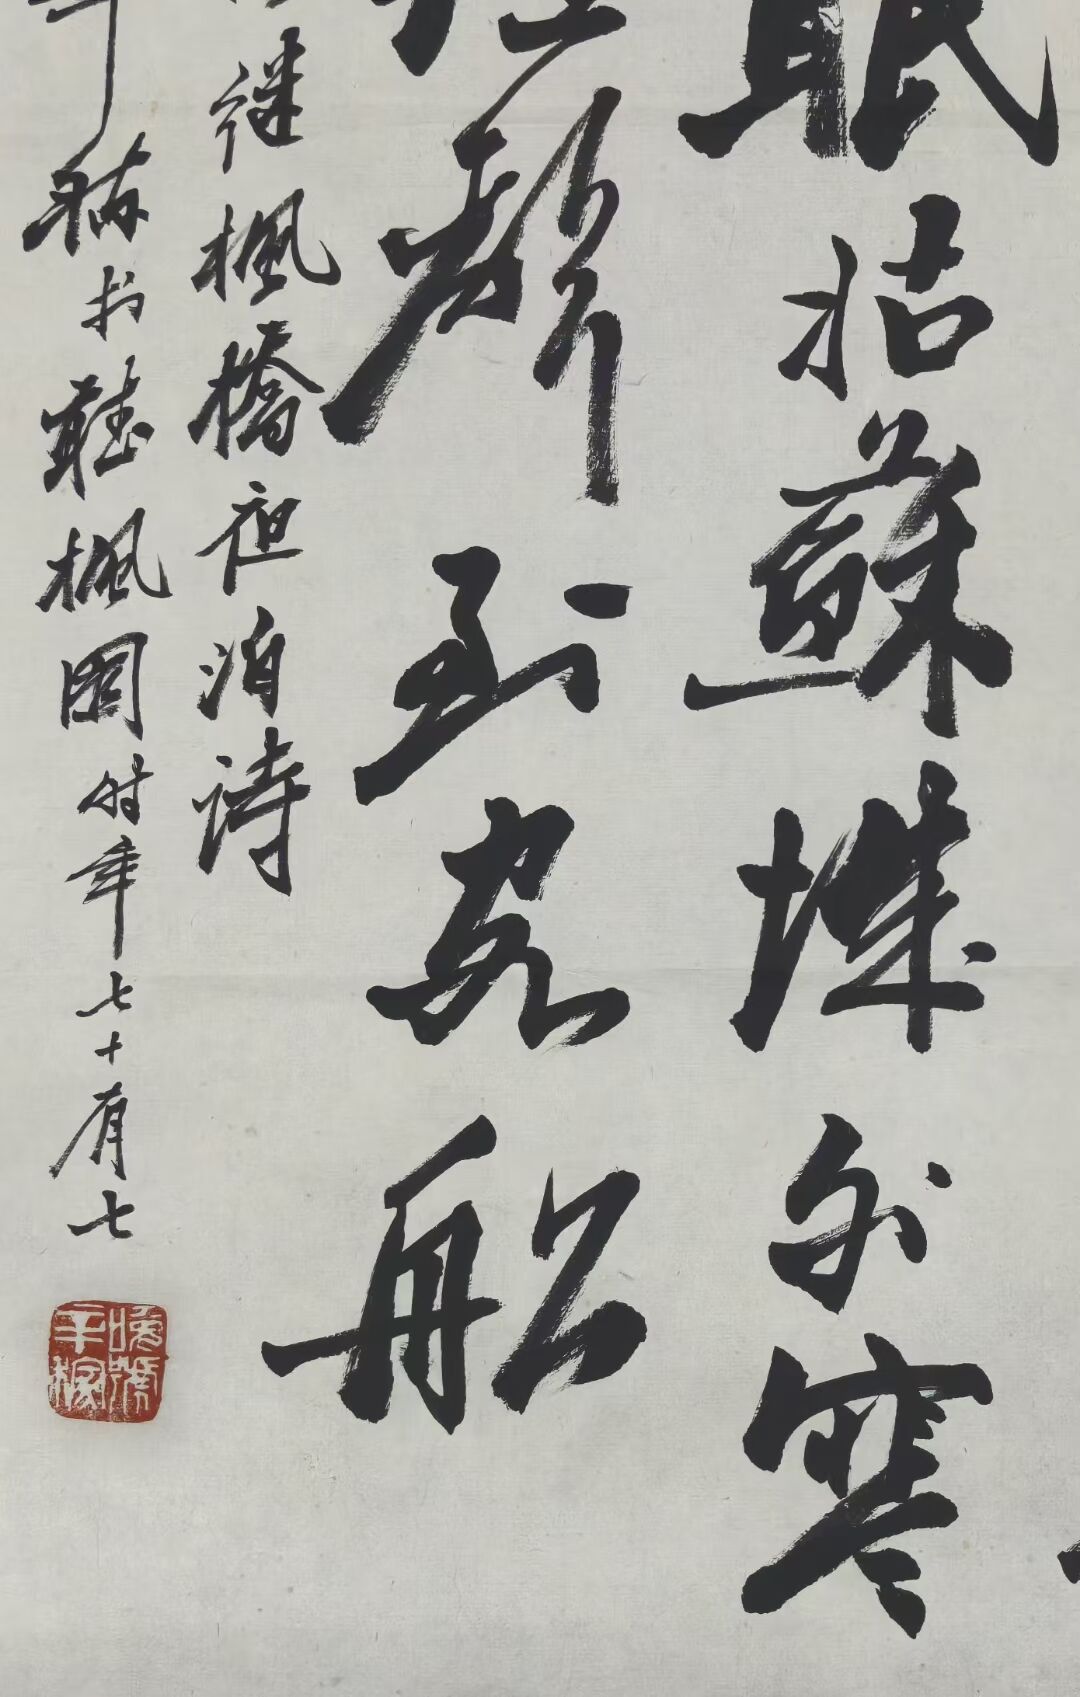 眠姑蘇城外寒
聲到客船
继楓橋夜泊詩
辛稼书聽楓園时年七十有七